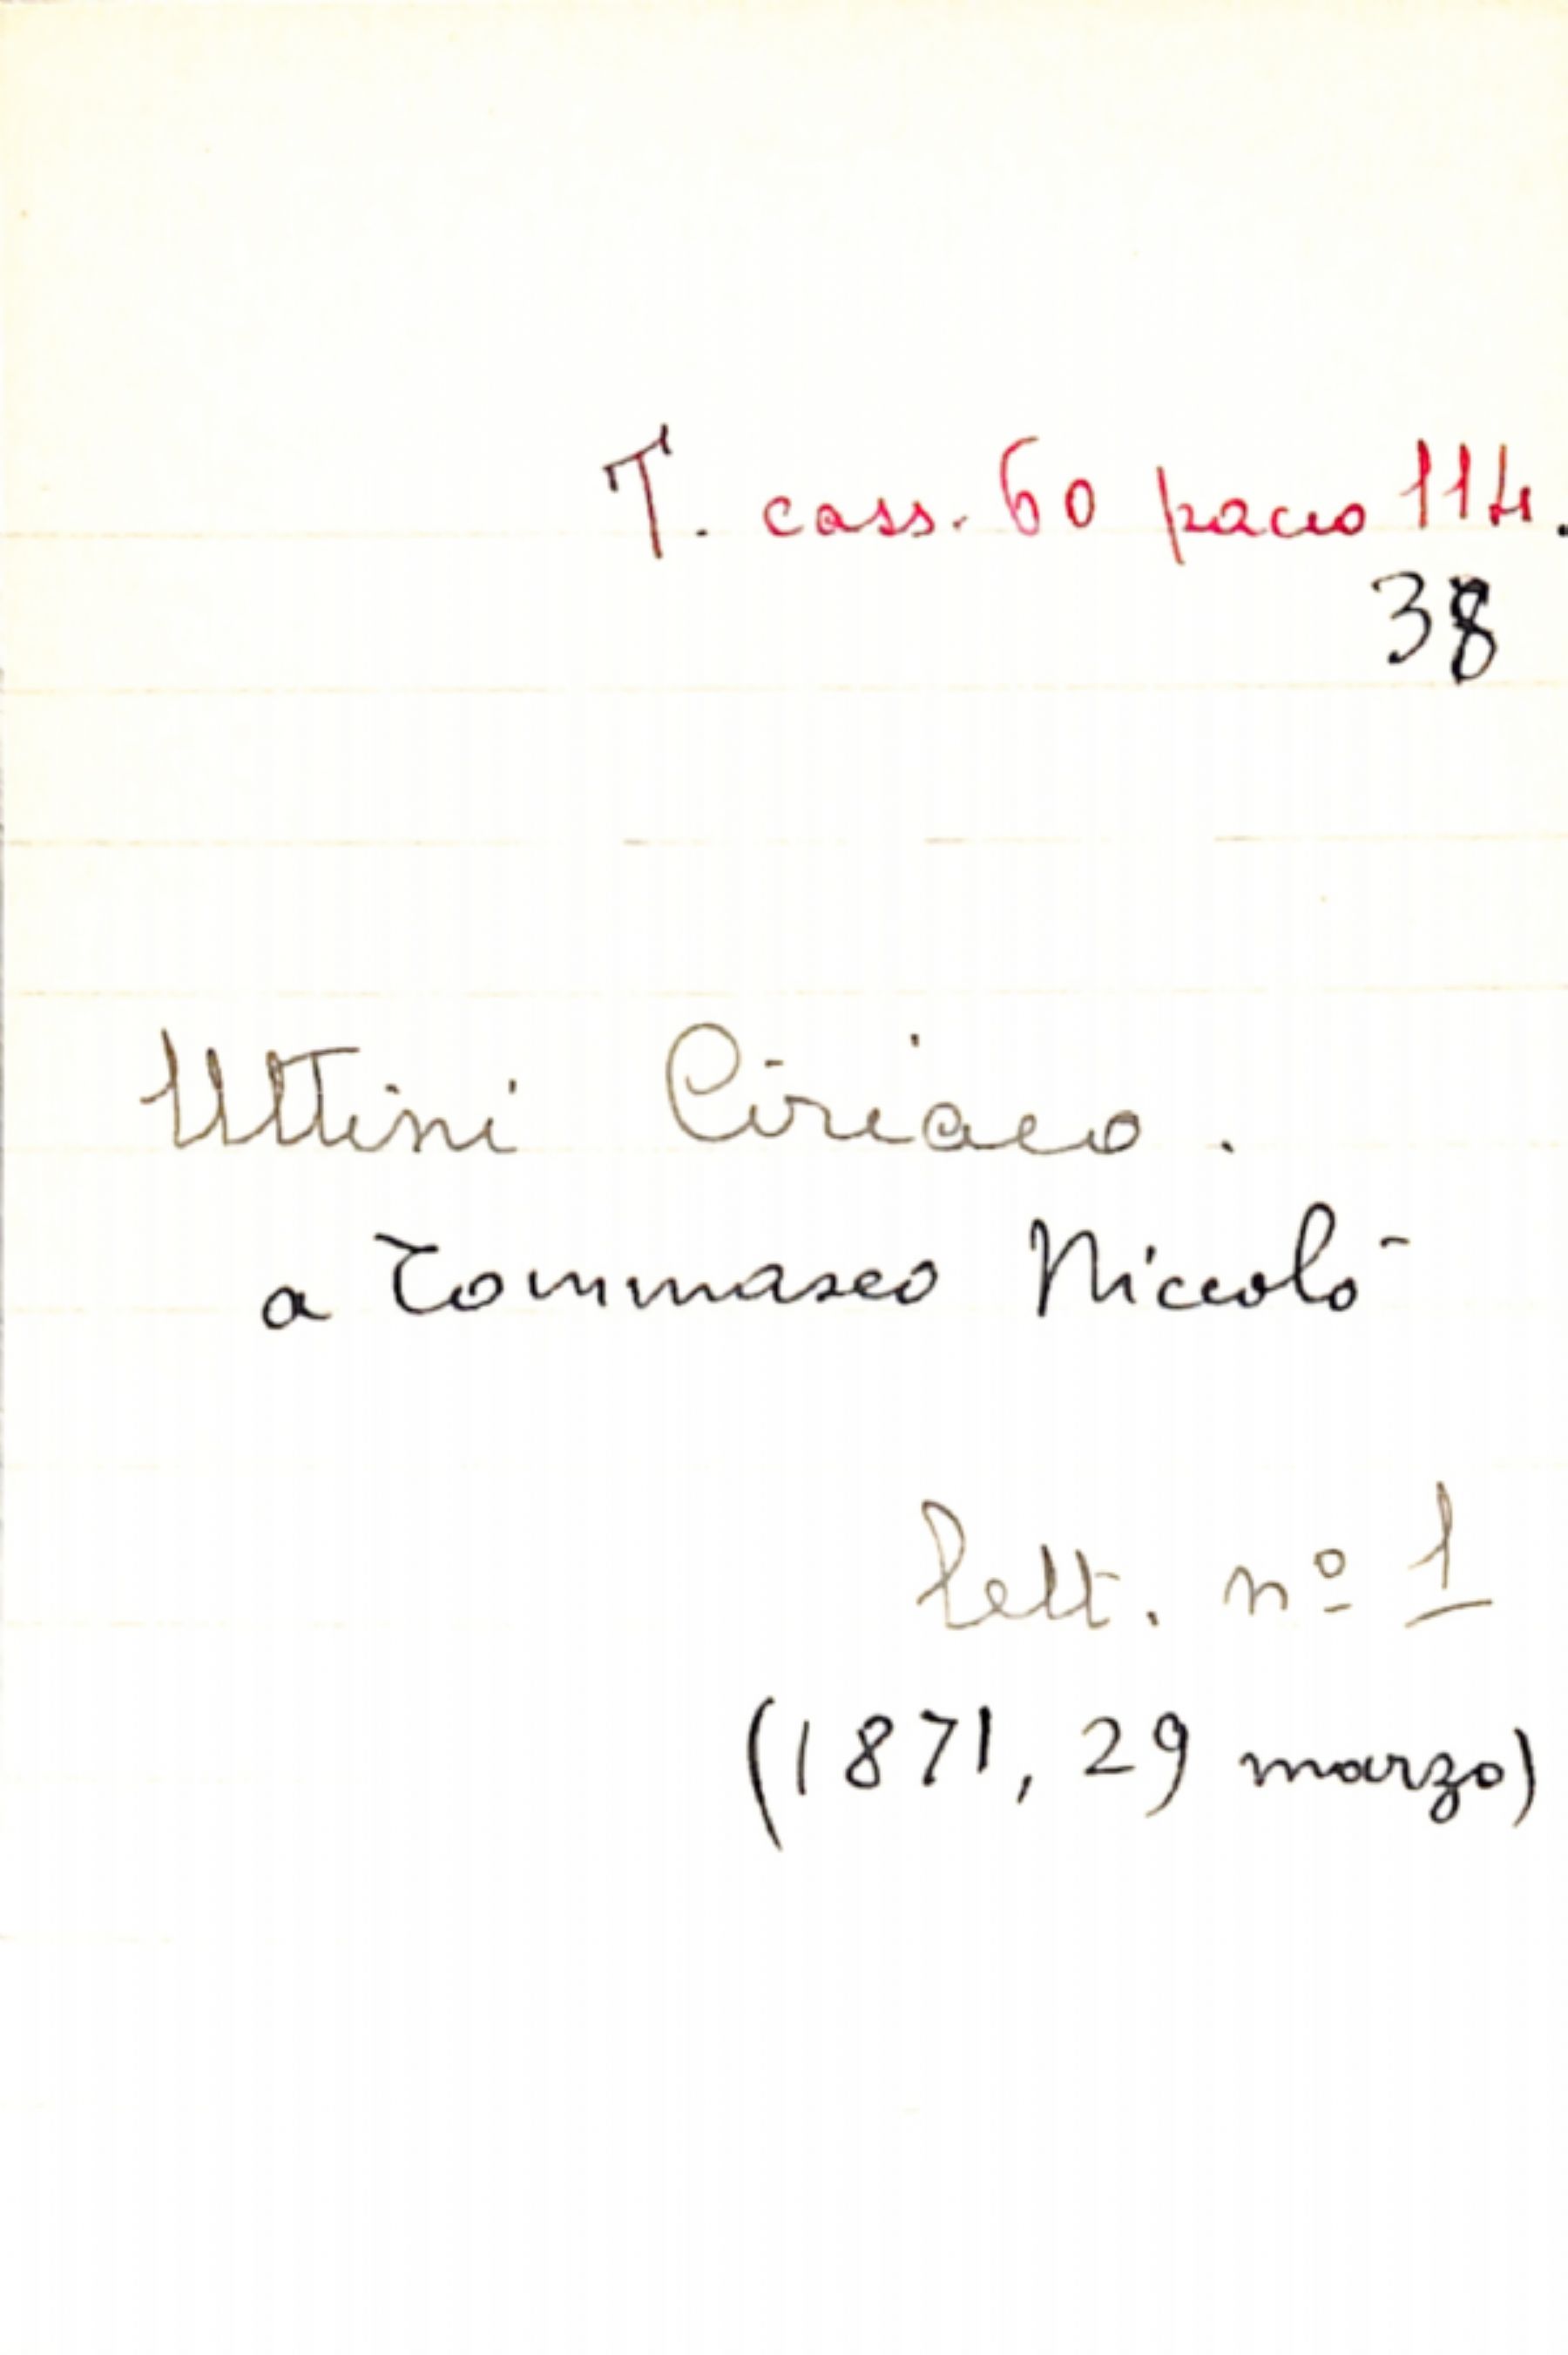 T. cass. 60 pacco 114.
38
Uttini Ciriaco.
a Tommaseo Niccolò
lett. nº 1
(1871, 29 marzo)